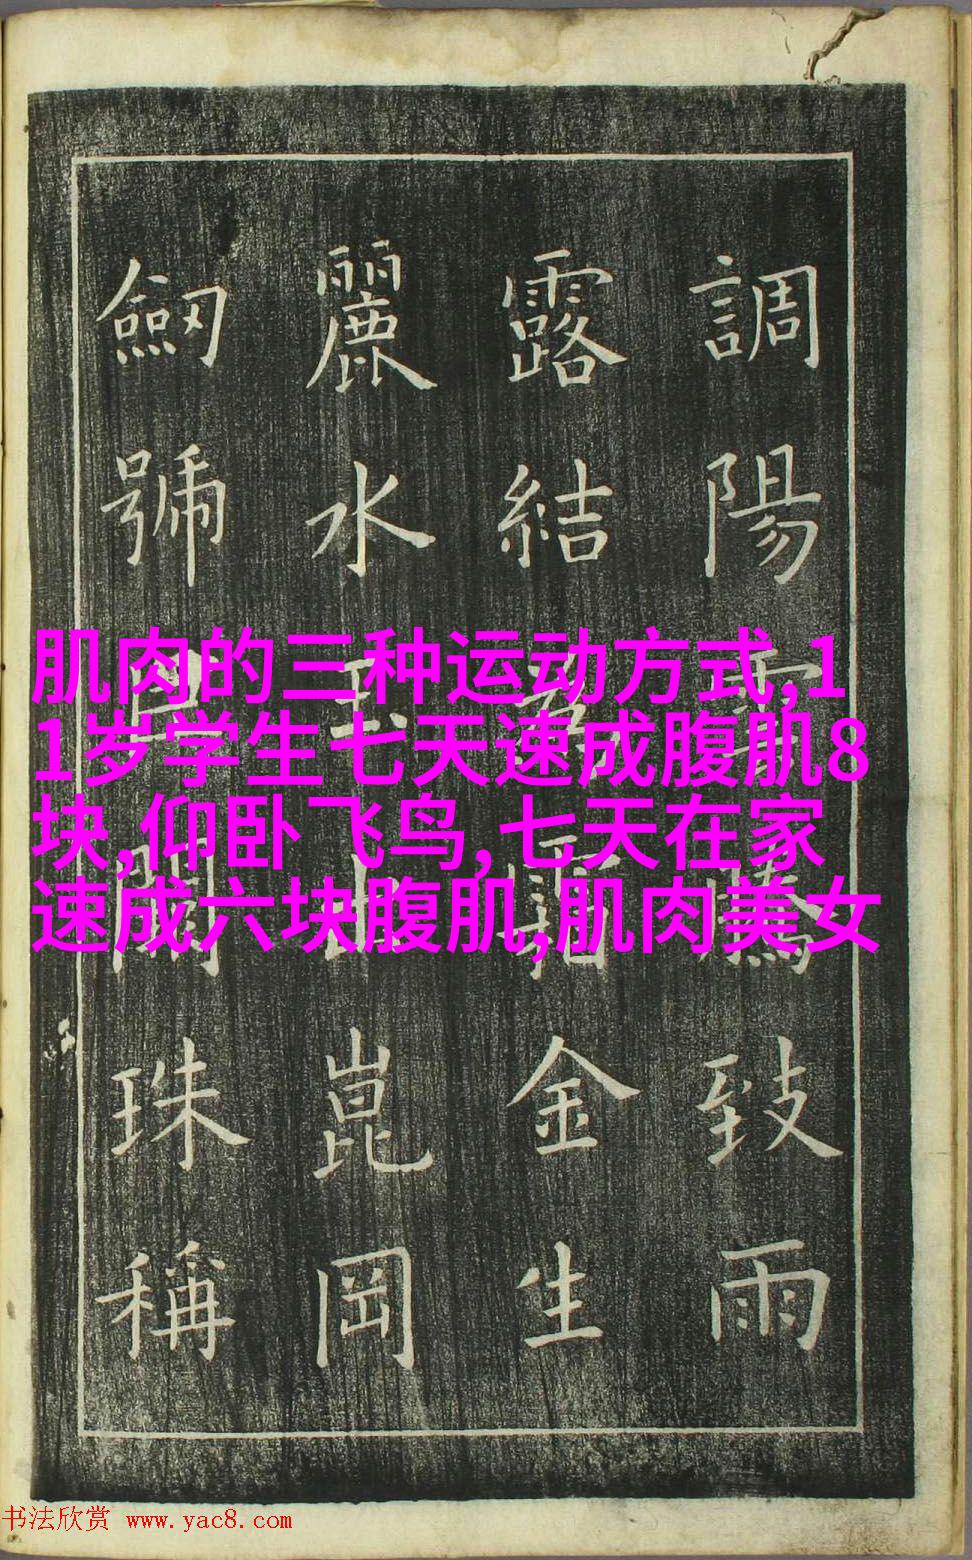 調陽雲騰致雨
露結為霜金生
麗水玉出崑岡
劒號巨闕珠稱
肌肉的三种运动方式,1
1岁学生七天速成腹肌8
块,仰卧 飞鸟, 七天在家
速成六块腹肌,肌肉美女
书法欣赏 www.yac8.com